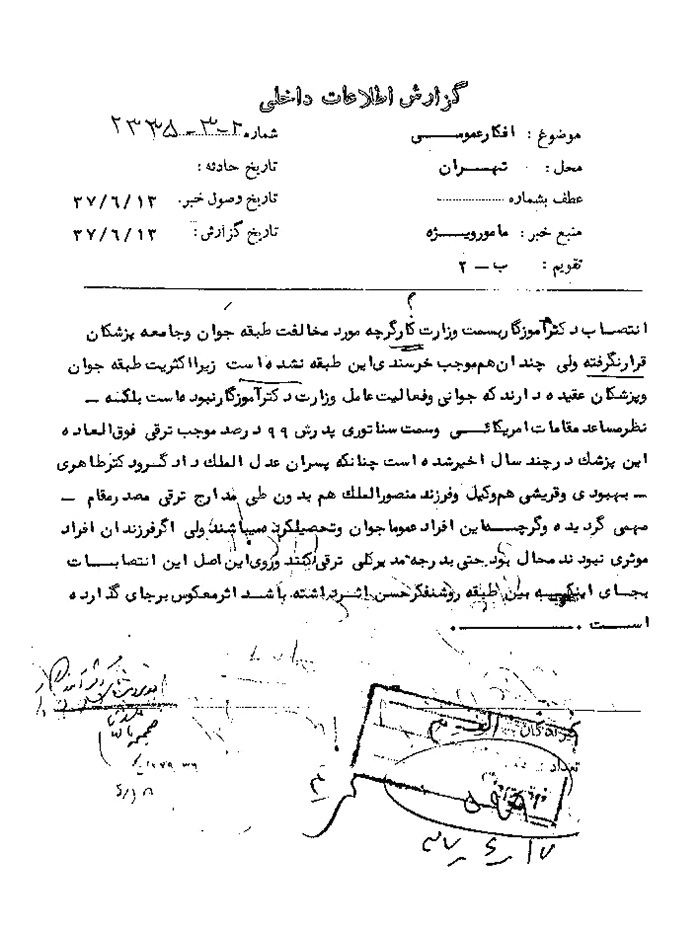 گزارش اطلاعات داخلی
موضوع : افکار عمومــی
شماره ۲۳۳۵-۳-۲
محل : تهــران
تاریخ حادثه :
عطف بشماره
تاریخ وصول خبر. ۳۷/۶/۱۳
منبع خبر : مامور ویــژه
تاریخ گزارش : ۳۷/۶/۱۳
تقویم : ب – ۲
انتصاب دکتر آموزگار بسمت وزارت کار گرچه مورد مخالفت طبقه جوان و جامعه پزشکان
قرار نگرفته ولی چندان هم موجب خرسندی این طبقه نشده است زیرا اکثریت طبقه جوان
و پزشکان عقیده دارند که جوانی و فعالیت عامل وزارت دکتر آموزگار نبوده است بلکــه –
نظر مساعد مقامات امریکائــی و سمت سناتوری پدرش ۹۹ درصد موجب ترقی فوق العاده
این پزشک در چند سال اخیر شده است چنانکه پسران عدل الملک دادگر و دکتر طاهری
– بهبودی و قریشی هم وکیل و فرزند منصور الملک هم بدون طی مدارج ترقی مصدر مقام –
مهمی گردیده و گرچــه این افراد عموما جوان و تحصیلکرده میباشند ولی اگر فرزندان افراد
موثری نبودند محال بود حتی بدرجه مدیر کلی ترقی کنند و روی این اصل این انتصابــات
بجای اینکــه بین طبقه روشنفکر حسن اثر داشته باشد اثر معکوس برجای گذارده
اســت .
گیرندگان
تعداد :
۳۷/۶/۱۷